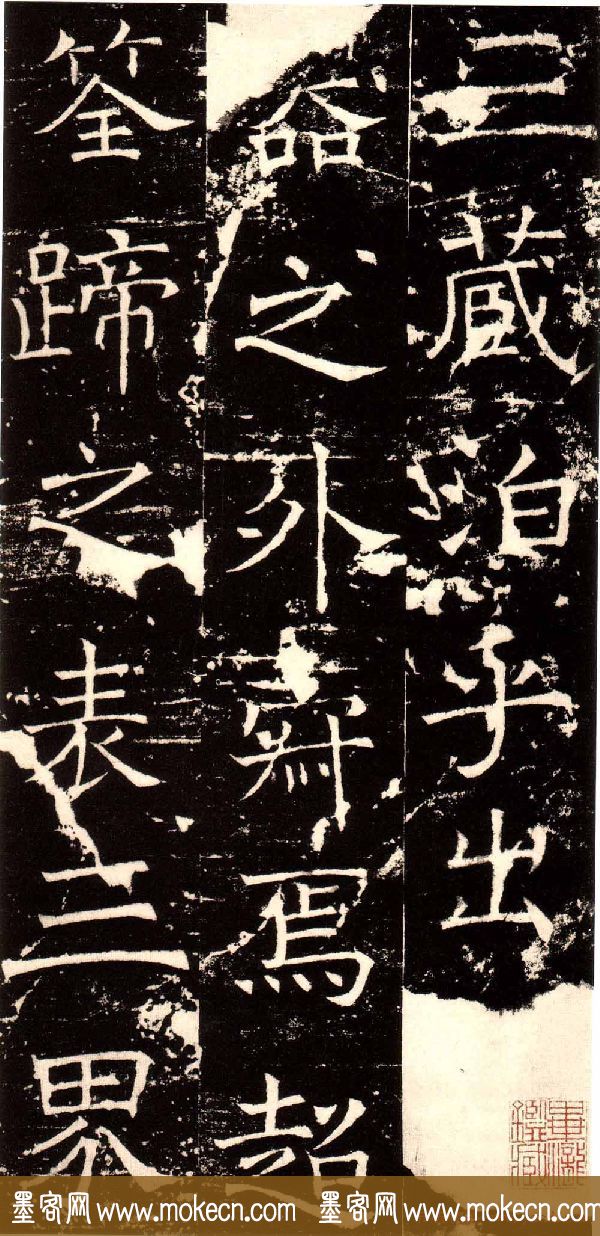 三藏泊乎出
命之外焉超
筌蹄之表三界
畢瀧
鑑藏
墨客网 www.mokecn.com 墨客网 www.mokecn.com